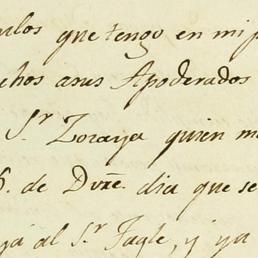 que tengo en mi
chos asus Apoderados
S.r Zoraya quien
de Dize. dia que se
al S.r Tagle, y ya